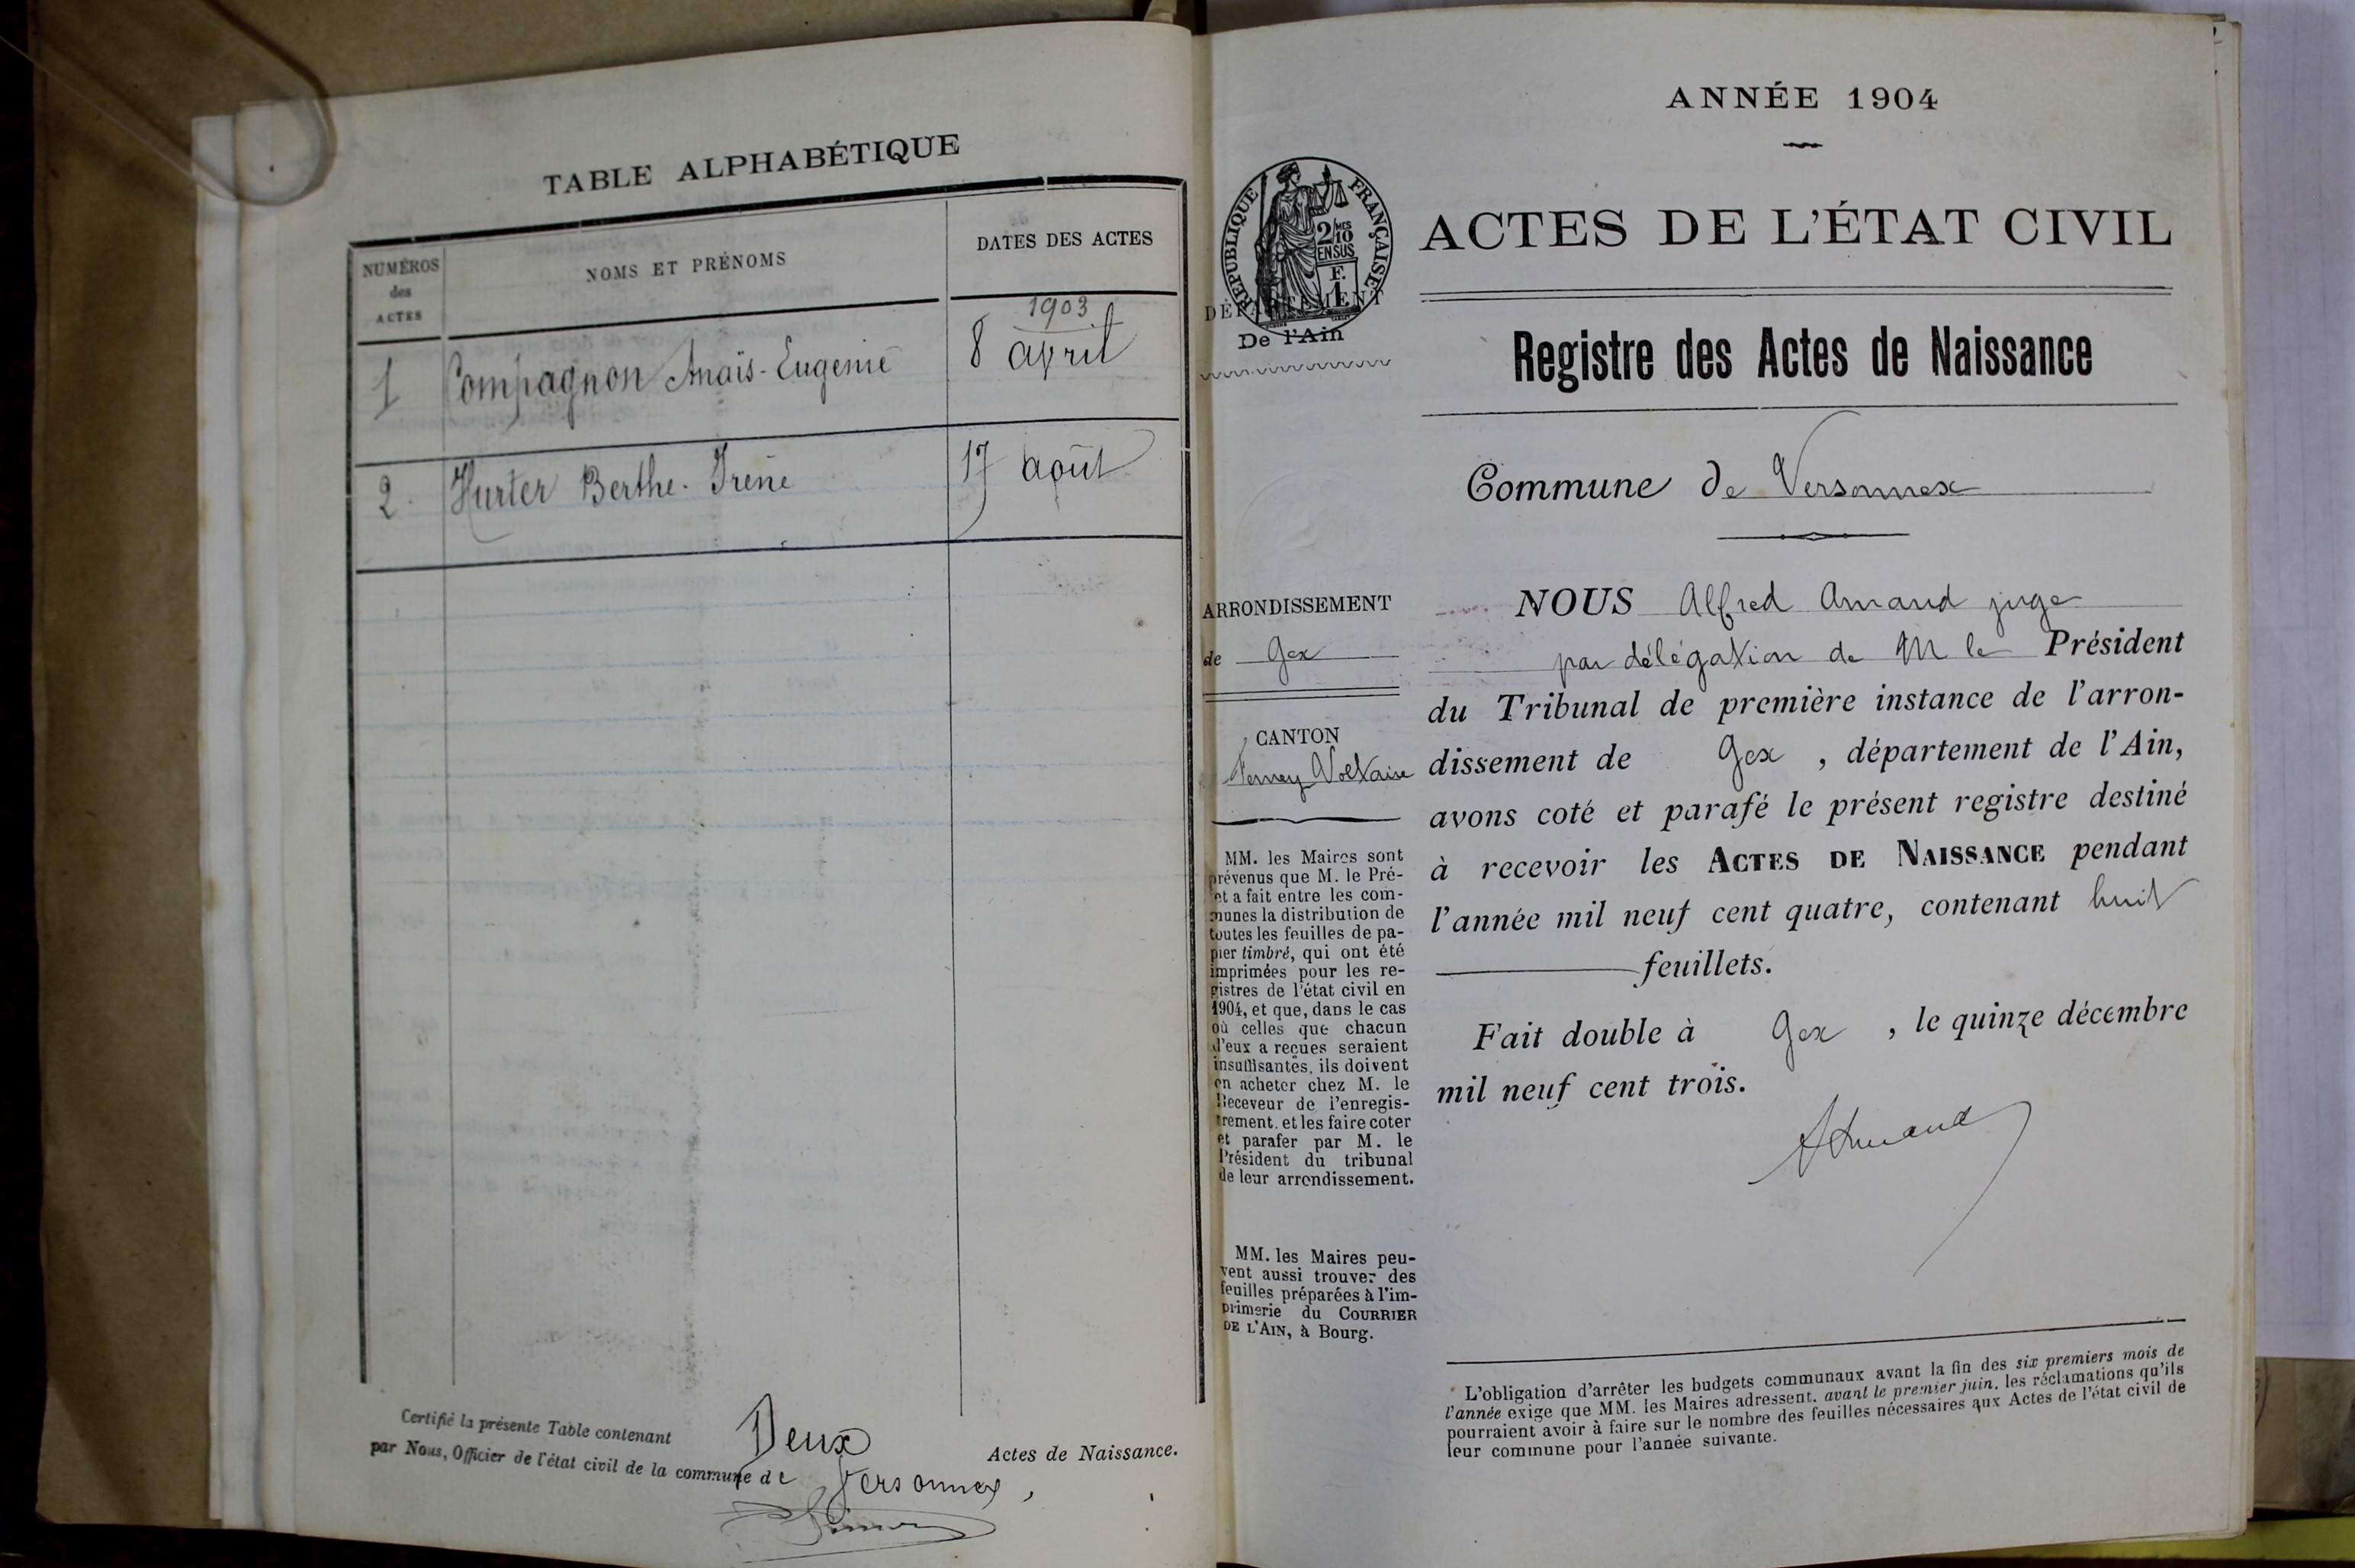 TABLE ALPHABÉTIQUE
NUMÉROS
des
ACTES
NOMS ET PRÉNOMS
DATES DES ACTES
1903
1 Compagnon Anaïs-Eugenie 8 avril
2. Hurter Berthe-Irène 17 août
Certifié la présente Table contenant Deux Actes de Naissance.
par Nous, Officier de l'état civil de la commune de Versonnex,
ANNÉE 1904
RÉPUBLIQUE FRANÇAISE
2/10MES
EN SUS
F.
1
DÉPARTEMENT
De l'Ain
ACTES DE L'ÉTAT CIVIL
Registre des Actes de Naissance
Commune de Versonnex
ARRONDISSEMENT
de Gex
CANTON
Ferney Voltaire
MM. les Maires sont
prévenus que M. le Pré-
et a fait entre les com-
munes la distribution de
toutes les feuilles de pa-
pier timbré, qui ont été
imprimées pour les re-
gistres de l'état civil en
1904, et que, dans le cas
où celles que chacun
d'eux a reçues seraient
insuffisantes, ils doivent
en acheter chez M. le
Receveur de l'enregis-
trement, et les faire coter
et parafer par M. le
Président du tribunal
de leur arrondissement.
MM. les Maires peu-
vent aussi trouver des
feuilles préparées à l'im-
primerie du COURRIER
DE L'AIN, à Bourg.
NOUS Alfred Amaud juge
par délégation de M le Président
du Tribunal de première instance de l'arron-
dissement de Gex, département de l'Ain,
avons coté et parafé le présent registre destiné
à recevoir les ACTES DE NAISSANCE pendant
l'année mil neuf cent quatre, contenant huit
feuillets.
Fait double à Gex, le quinze décembre
mil neuf cent trois.
L'obligation d'arrêter les budgets communaux avant la fin des six premiers mois de
l'année exige que MM. les Maires adressent, avant le premier juin, les réclamations qu'ils
pourraient avoir à faire sur le nombre des feuilles nécessaires aux Actes de l'état civil de
leur commune pour l'année suivante.